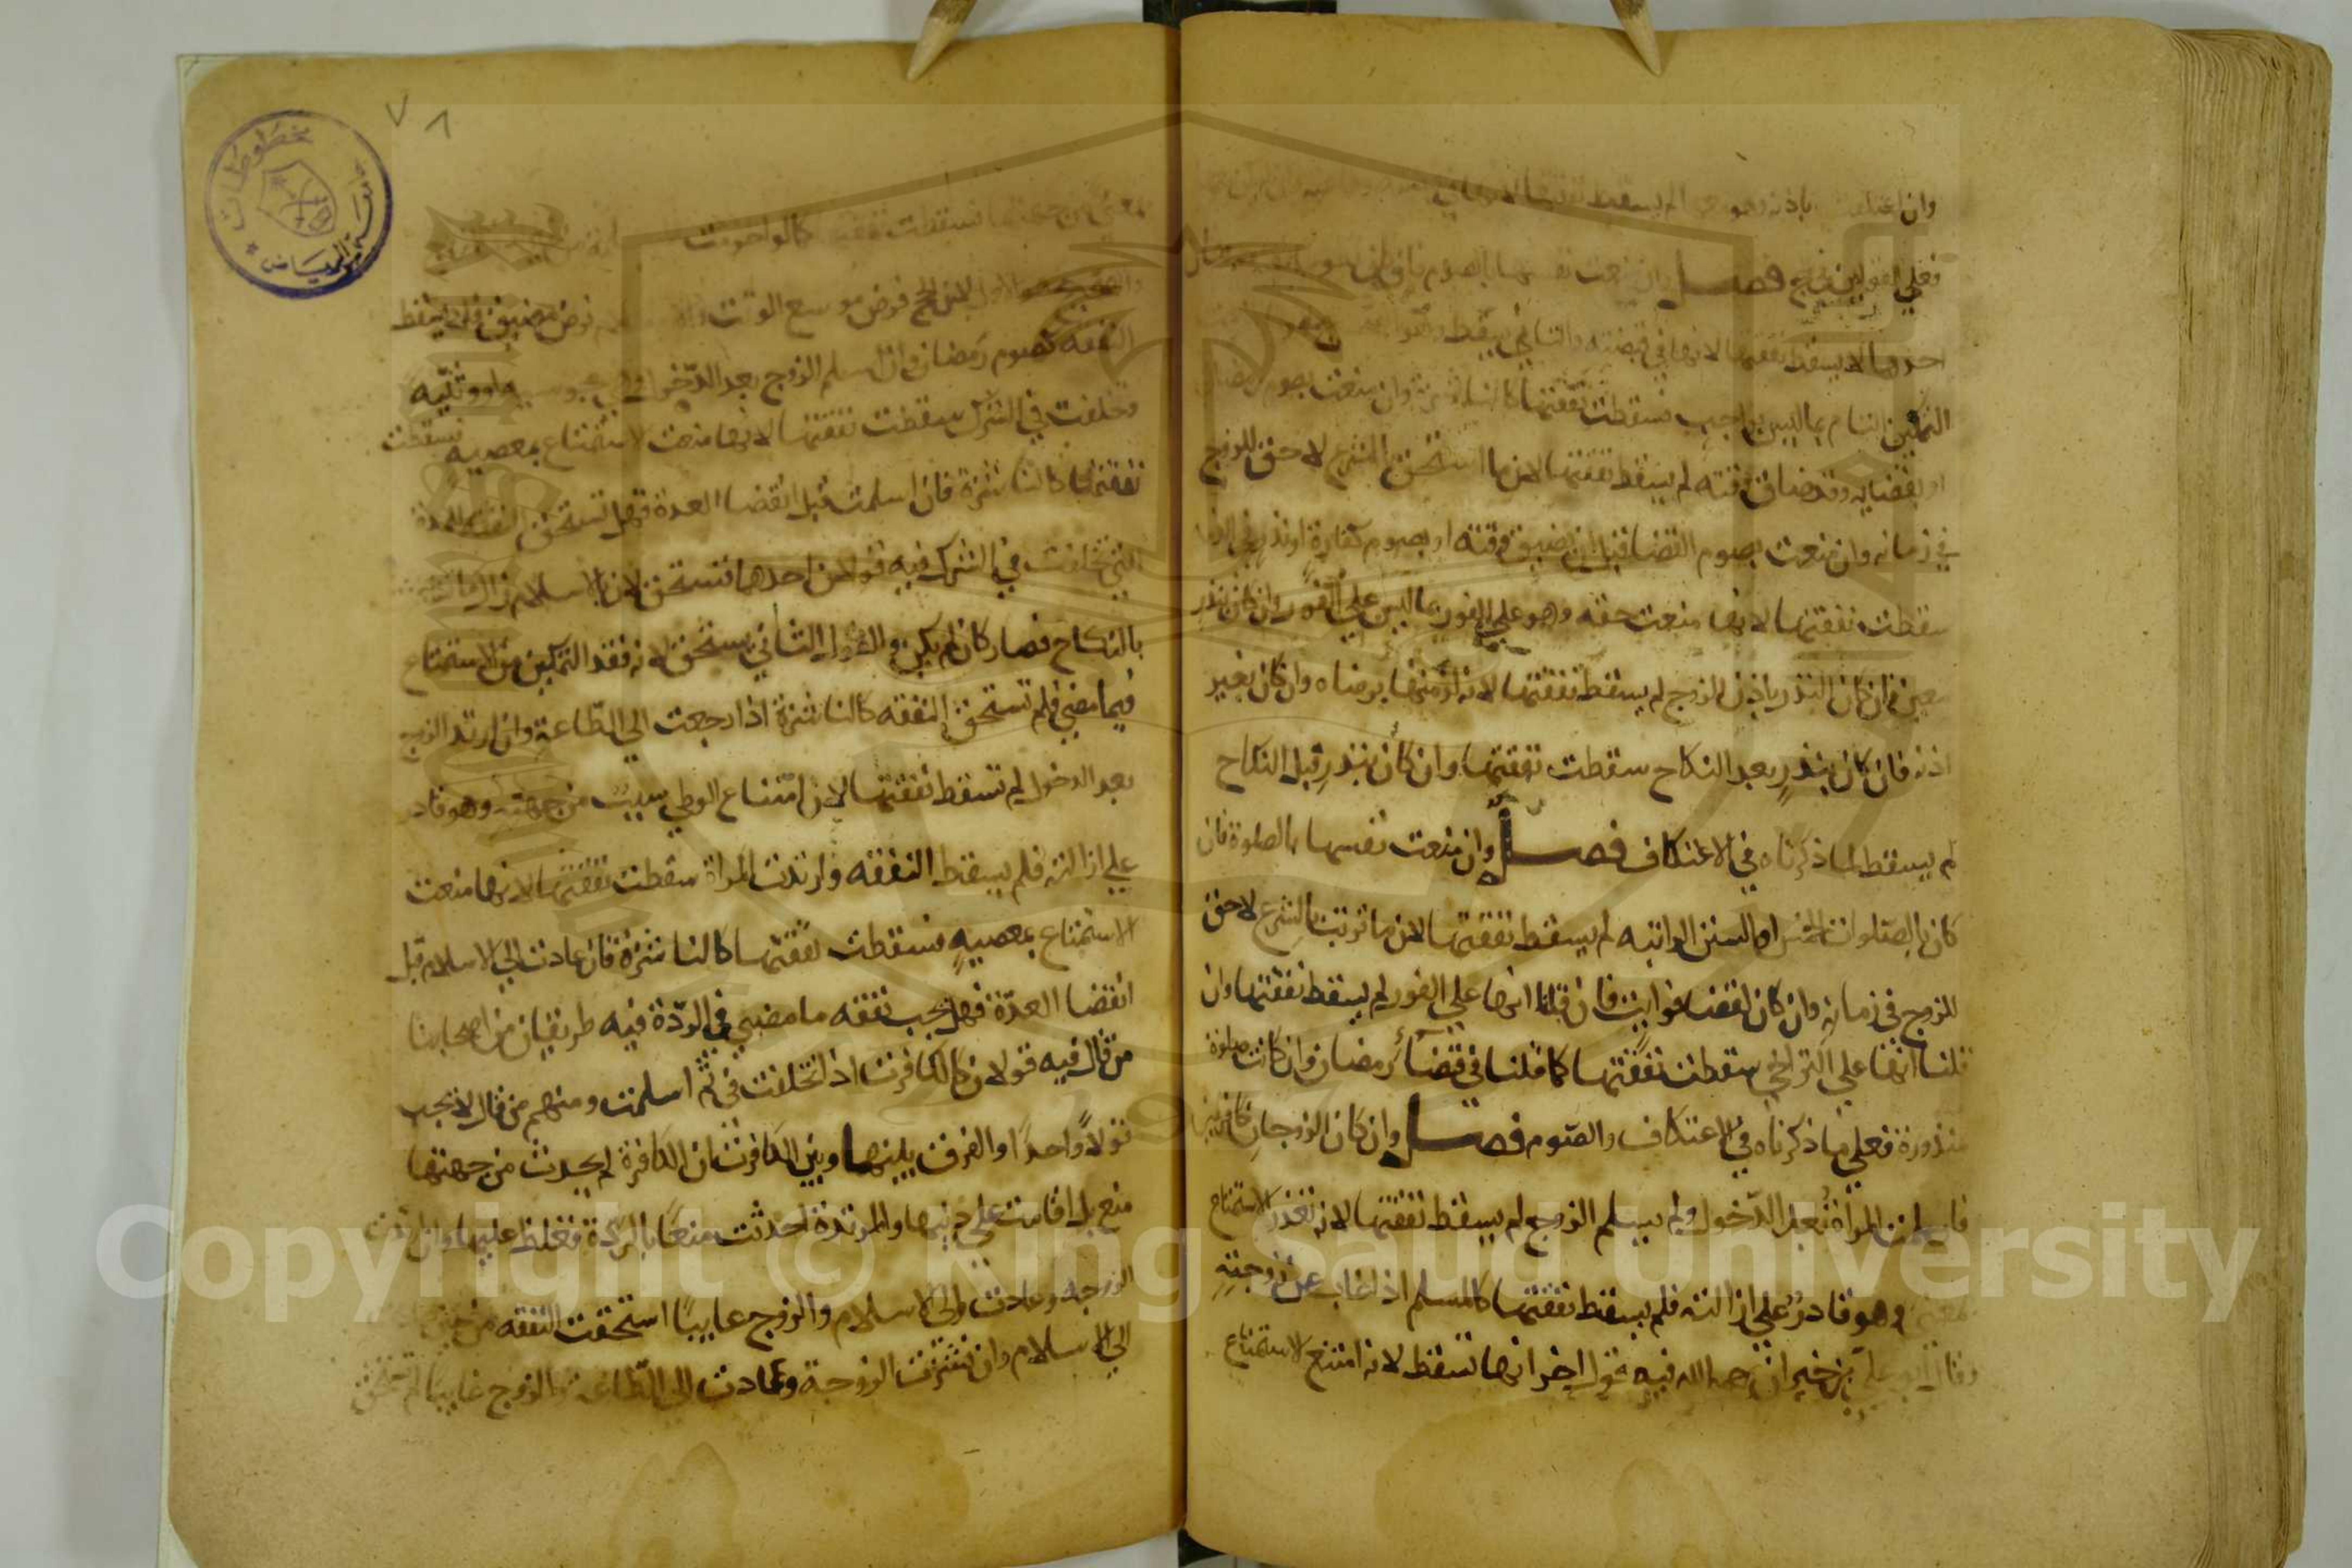 وان اعتكفت باذنه وهو معها لم يسقط نفقتها لانها في
فعلى القولين في الحج فصل وان منعت نفسها بالصوم فان كان
احدهما لا يسقط نفقتها لانها في قبضته والثاني يسقط وهو
التمكين التام بما ليس بواجب فسقطت نفقتها كالناشزة وان منعت بصوم رمضان
او بقضايه وقد ضاق وقته لم يسقط نفقتها لان ما استحق بالشرع لا حق للزوج
في زمانه وان منعت بصوم القضا قبل ان يضيق وقته او بصوم كفارة او نذر في الذمة
سقطت نفقتها لانها منعت حقه وهو على الفور بما ليس على الفور وان كان بنذر
معين فان كان النذر باذن الزوج لم يسقط نفقتها لانه لزمها برضاه وان كان بغير
اذنه فان كان بنذر بعد النكاح سقطت نفقتها وان كان بنذر قبل النكاح
لم يسقط لما ذكرناه في الاعتكاف فصل وان منعت نفسها بالصلوة فان
كان بالصلوات الخمس او السنن الراتبه لم يسقط نفقتها لان ما ترتب بالشرع لا حق
للزوج في زمانه وان كان لقضا فوايت فان قلنا انها على الفور لم يسقط نفقتها وان
قلنا انها على التراخي سقطت نفقتها كما قلنا في قضآء رمضان وان كانت صلوة
منذورة فعلى ما ذكرناه في الاعتكاف والصوم فصل وان كان الزوجان كافرين
فاسلمت المراة بعد الدخول ولم يسلم الزوج لم يسقط نفقتها لانه تعذر الاستمتاع
لمعنى وهو قادر على ازالته فلم يسقط نفقتها كالمسلم اذا غاب عن زوجته
وقال ابو علي بن خيران رحمه الله فيه قول اخر انها تسقط لانه امتنع الاستمتاع
٧٨
مخطوطات
جامعة الرياض
لمعنى من جهتها فسقطت نفقتها كما لو احرمت
والصحيح هو الاول لان الحج فرض موسع الوقت فرض مضيق فلا يسقط
النفقه كصوم رمضان وان اسلم الزوج بعد الدخول وهي مجوسيه او وثنيه
وتخلفت في الشرك سقطت نفقتها لانها منعت الاستمتاع بمعصيه فسقطت
نفقتها كالناشزة فان اسلمت قبل انقضا العدة فهل تستحق النفقه للمدة
التي تخلفت في الشرك فيه قولان احدهما تستحق لان بالاسلام زال
بالنكاح فصار كان لم يكن والقول الثاني لا تستحق لانه فقد التمكين من الاستمتاع
فيما مضى فلم تستحق النفقه كالناشزة اذا رجعت الى الطاعة وان ارتد الزوج
بعد الدخول لم تسقط نفقتها لان امتناع الوطي بسبب من جهته وهو قادر
على ازالته فلم يسقط النفقه وان ارتدت المراة سقطت نفقتها لانها منعت
الاستمتاع بمعصيه فسقطت نفقتها كالناشزة فان عادت الى الاسلام قبل
انقضا العدة فهل يجب نفقه ما مضى في الردة فيه طريقان من اصحابنا
من قال فيه قولان كالكافرت اذا تخلفت في ثم اسلمت ومنهم من قال لا يجب
قولاً واحداً والفرق بينها وبين الكافرت ان الكافرة لم يحدث من جهتها
منع بل اقامت على دينها والمرتدة احدثت منعاً بالردة فغلظ عليها وان ارتدت
الزوجه وعادت الى الاسلام والزوج غايباً استحقت النفقه من حين
الى الاسلام وان نشزت الزوجة وعادت الى الطاعة والزوج غايبا لم تستحق
Copyright © King Saud University